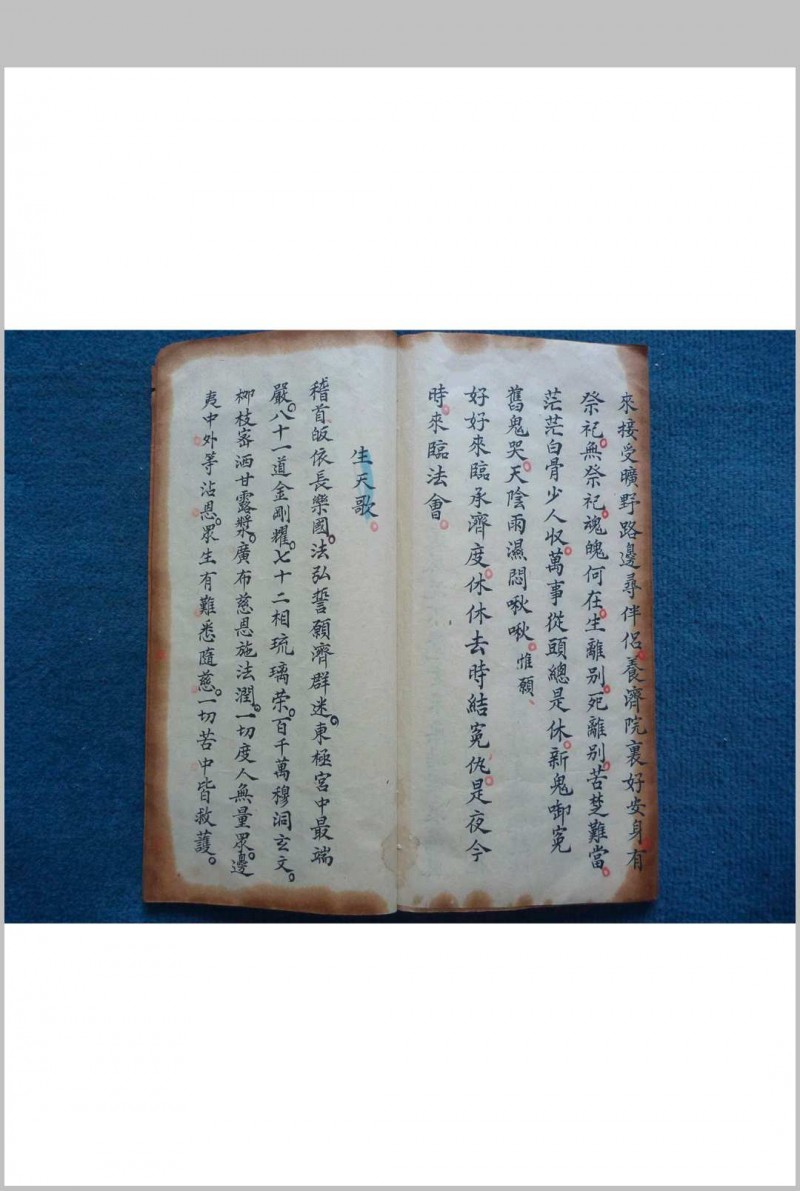 來接受曠野路邊尋伴侣養濟院裏好安身有
祭祀。無祭祀。魂魄何在。生離別。死離別。苦楚難當。
茫茫白骨少人収。萬事從頭總是休。新鬼啣寃
舊鬼哭。天陰雨濕悶啾啾。惟願、
好好來臨承濟度。休休去時結寃仇。是夜今
時。來臨法會。
生天歌。
稽首皈依長樂國。法弘誓願濟群迷。東極宮中最端
嚴。八十一道金剛耀。七十二相琉璃荣。百千萬穆洞玄文。
柳枝密洒甘露漿。廣布慈恩施法潤。一切度人無量眾。邊
夷中外等沾恩。眾生有難悉隨慈。一切苦中皆救護。